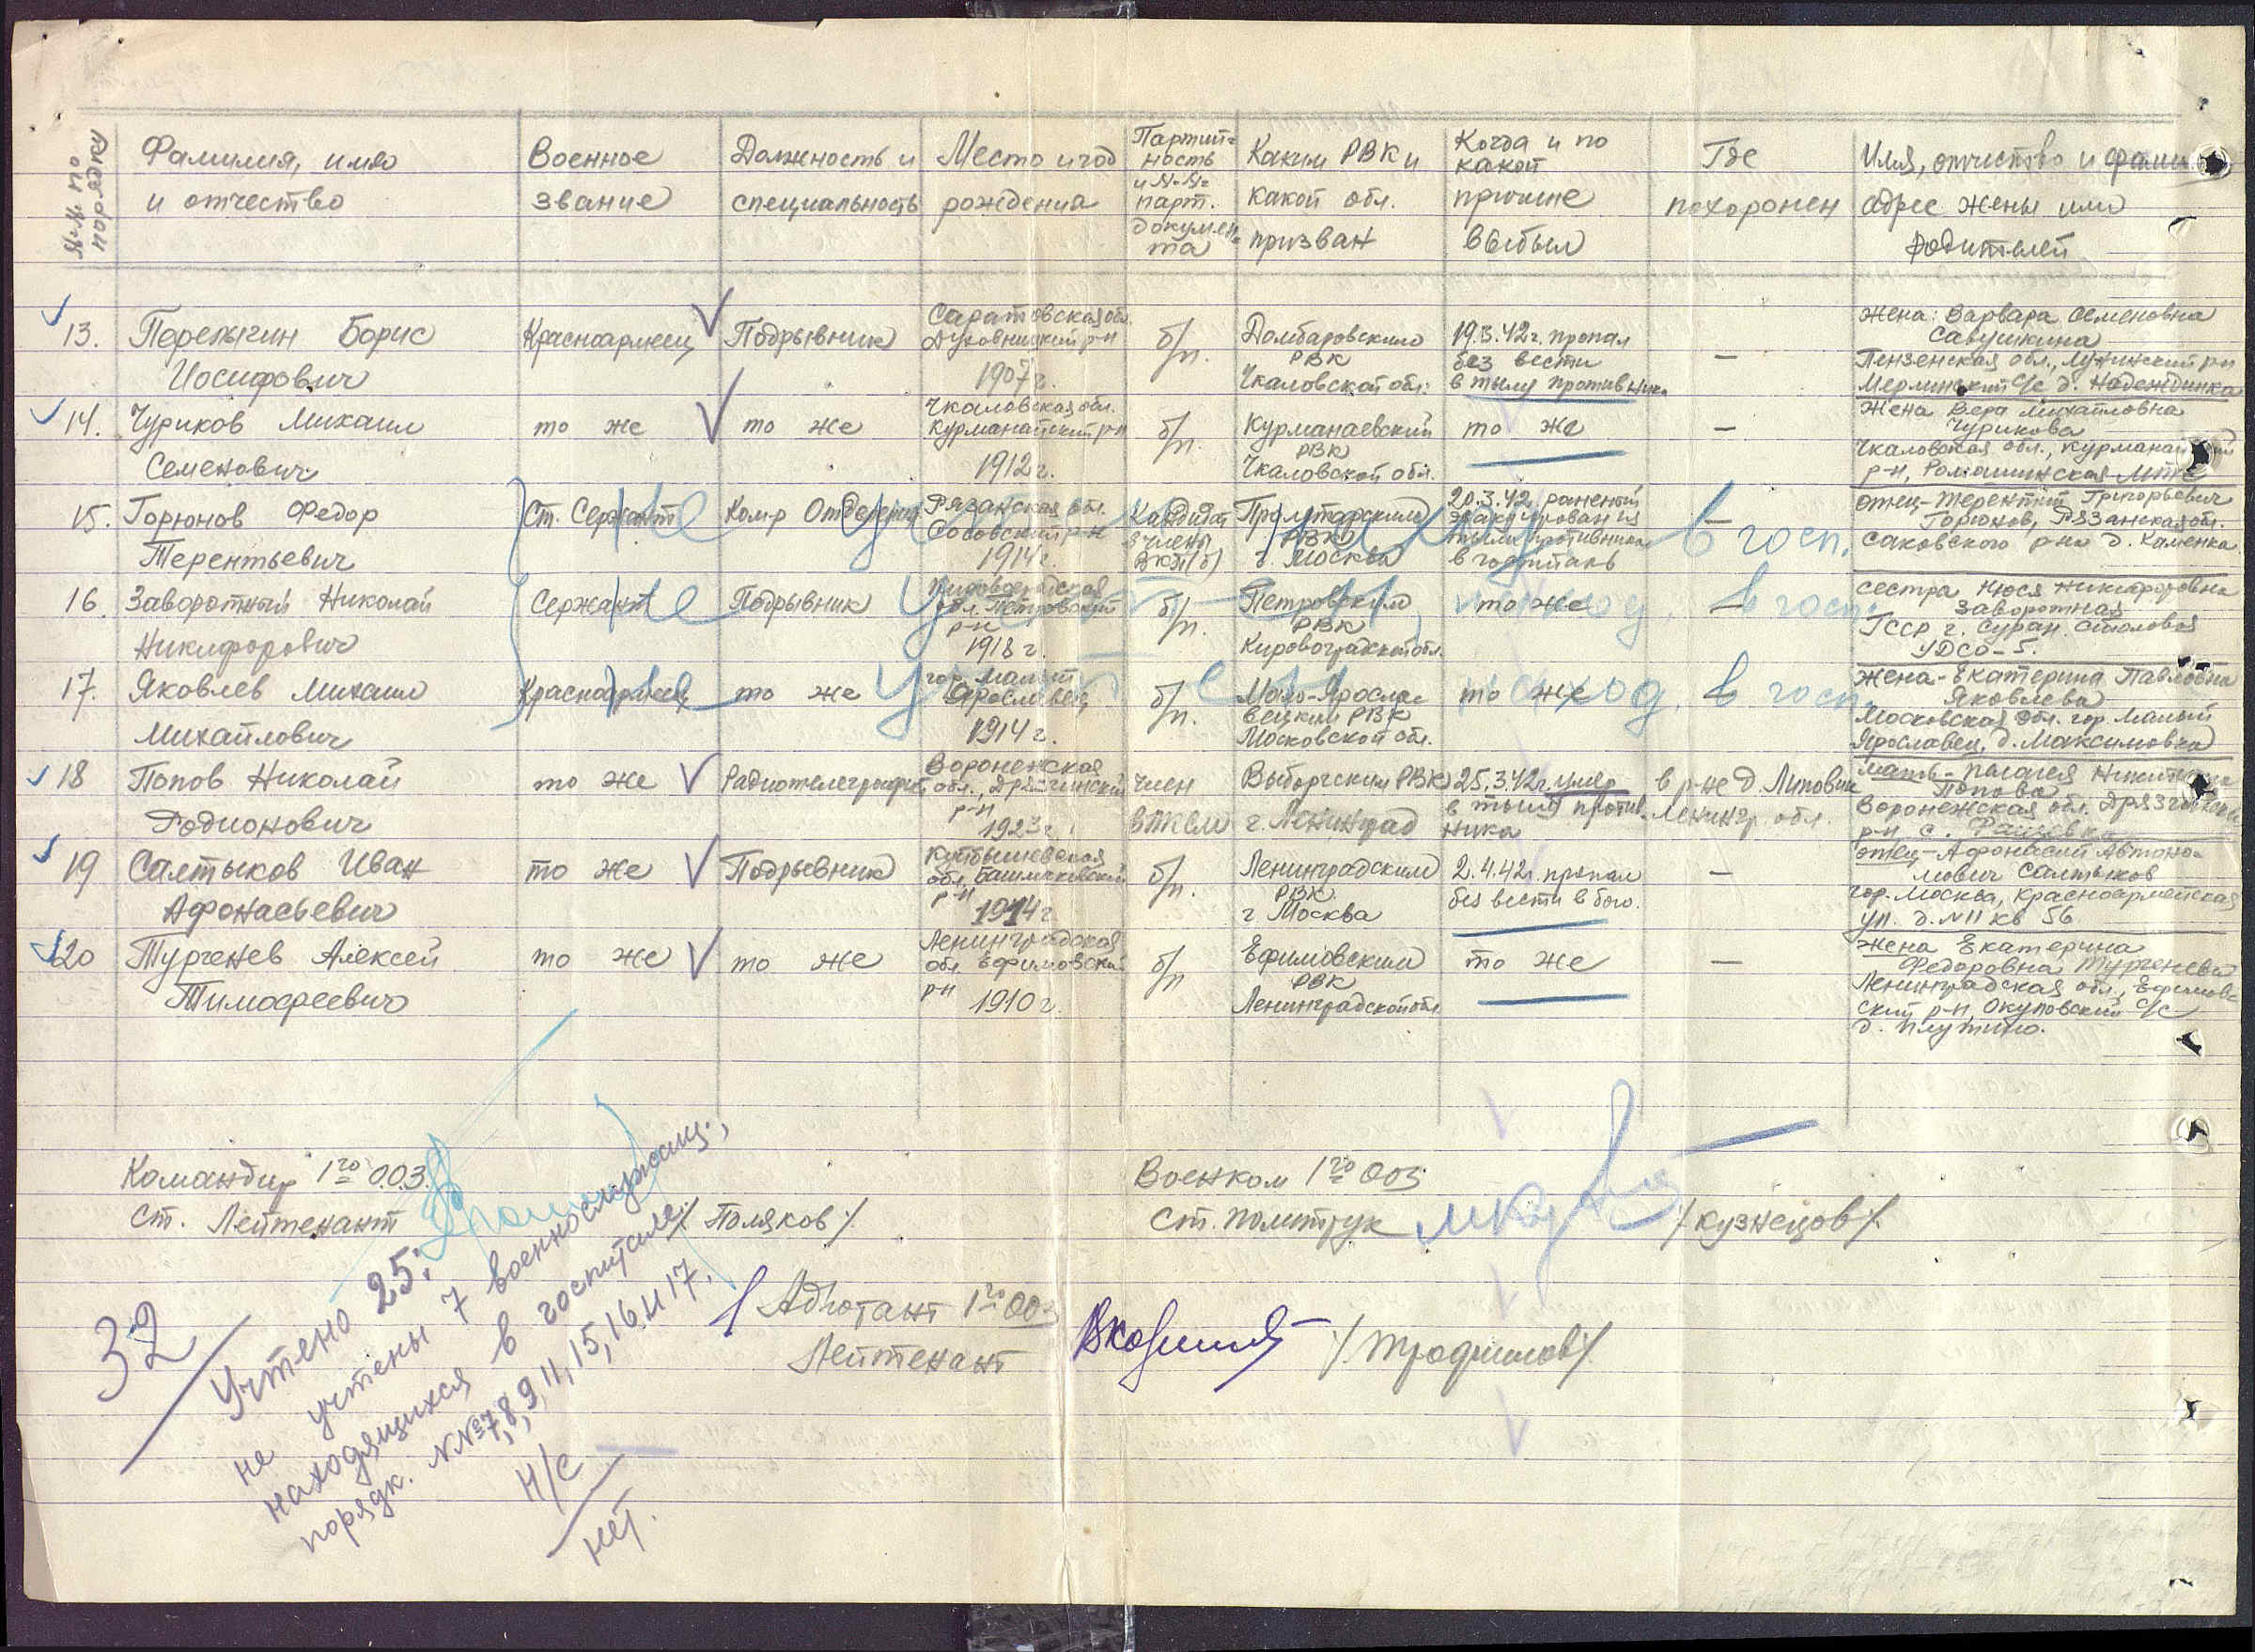 №№ по
порядку
Фамилия, имя
и отчество
Военное
звание
Должность и
специальность
Место и год
рождения
Партий=
ность
и №-№=
парт.
докумен=
та
Каким РВК и
какой обл.
призван
Когда и по
какой
причине
выбыл
Где
похоронен
Имя, отчество и
адрес жены или
родителей
13.
Борис
Иосифович
Красноармеец
Подрывник
Саратовская обл.
Духовницкий р-н
1907 г.
б/п.
Домбаровским
РВК
Чкаловской обл.
19.3.42 г. пропал
без вести
в тылу противника
—
Жена: Варвара Семеновна
Савушкина
Пензенская обл., Лунинский р-н
Мерлинский с/с д. Надеждинка
14.
Чуриков Михаил
Семенович
то же
то же
Чкаловская обл.
р-н
1912 г.
б/п.
Курманаевский
РВК
Чкаловской обл.
то же
—
Жена Вера Михайловна
Чурикова
Чкаловская обл.,
р-н,
15.
Горюнов Федор
Терентьевич
Ст. Сержант
Ком-р Отделения
Рязанская обл.
Сосовский р-н
1914 г.
Кандидат
в члены
ВКП(б)
Пролетарским
РВК
г. Москва
20.3.42 раненый
эвакуирован из
тыла противника
в госпиталь
—
отец - Терентий Григорьевич
Горюнов, Рязанская обл.
Саковского р-на д. Каменка
не учтен, наход. в госп.
16.
Заворотный Николай
Никифорович
Сержант
Подрывник
Кировоградская
обл. Петровский
р-н
1918 г.
б/п.
Петровским
РВК
Кировоградской обл.
то же
—
сестра Нюся Никифоровна
Заворотная
г. столовая
УДСО-5.
не учтен, наход. в госп.
17.
Яковлев Михаил
Михайлович
Красноармеец
то же
гор. Малый
Ярославец
1914 г.
б/п.
Мало-Яросла-
вецким РВК
Московской обл.
то же
Жена - Екатерина Павловна
Яковлева
Московская обл. гор. Малый
Ярославец, д. Максимовка
не учтен наход. в госп.
18
Попов Николай
Родионович
то же
Радиотелеграфист
Воронежская
обл., Дрязгинский
р-н
1923 г.
член
ВЛКСМ
Выборгским РВК
г. Ленинград
25.3.42 г. умер
в тылу против-
ника
в р-не д. Липовик
Ленингр. обл.
мать - Пелагея Никитична
Попова
Воронежская обл. Дрязгинский
р-н с.
19
Салтыков Иван
Афонасьевич
то же
Подрывник
Куйбышевская
обл. Башмаковский
р-н
1914 г.
б/п.
Ленинградским
РВК
г Москва
2.4.42 г. пропал
без вести в бою.
—
отец - Афонасий Автоно-
мович Салтыков
гор. Москва, Красноармейская
ул. д. №11 кв 56
20
Тургенев Алексей
Тимофеевич
то же
то же
Ленинградская
обл. Ефимовский
р-н
1910 г.
б/п
Ефимовским
РВК
Ленинградской обл.
то же
—
Жена Екатерина
Федоровна Тургенева
Ленинградская обл., Ефимов-
ский р-н, Окуловский с/с
д. Плутино.
Командир 1го ООЗ.
Ст. Лейтенант
/. Поляков /.
Военком 1го ООЗ
Ст. Политрук
/ Кузнецов /.
Адъютант 1го ООЗ
Лейтенант
/. Трофимов /.
32
Учтено 25.
не учтены 7 военнослужащ.,
находящихся в госпитале
порядк. №№ 7, 8, 9, 11, 15, 16 и 17.
н/с
нет.